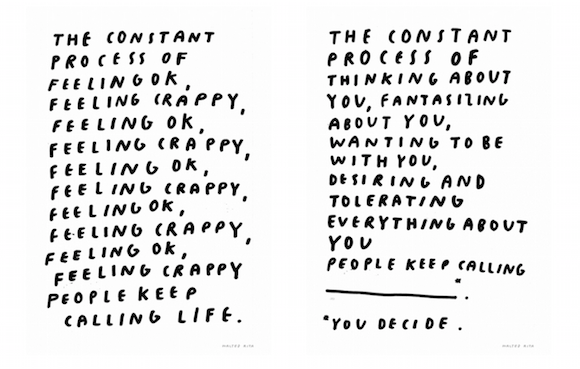 THE CONSTANT
PROCESS OF
FEELING OK,
FEELING CRAPPY,
FEELING OK,
FEELING CRAPPY,
FEELING OK,
FEELING CRAPPY,
FEELING OK,
FEELING CRAPPY,
FEELING OK,
FEELING CRAPPY
PEOPLE KEEP
CALLING LIFE.
THE CONSTANT
PROCESS OF
THINKING ABOUT
YOU, FANTASIZING
ABOUT YOU,
WANTING TO BE
WITH YOU,
DESIRING AND
TOLERATING
EVERYTHING ABOUT
YOU
PEOPLE KEEP CALLING
____________*.
*YOU DECIDE.